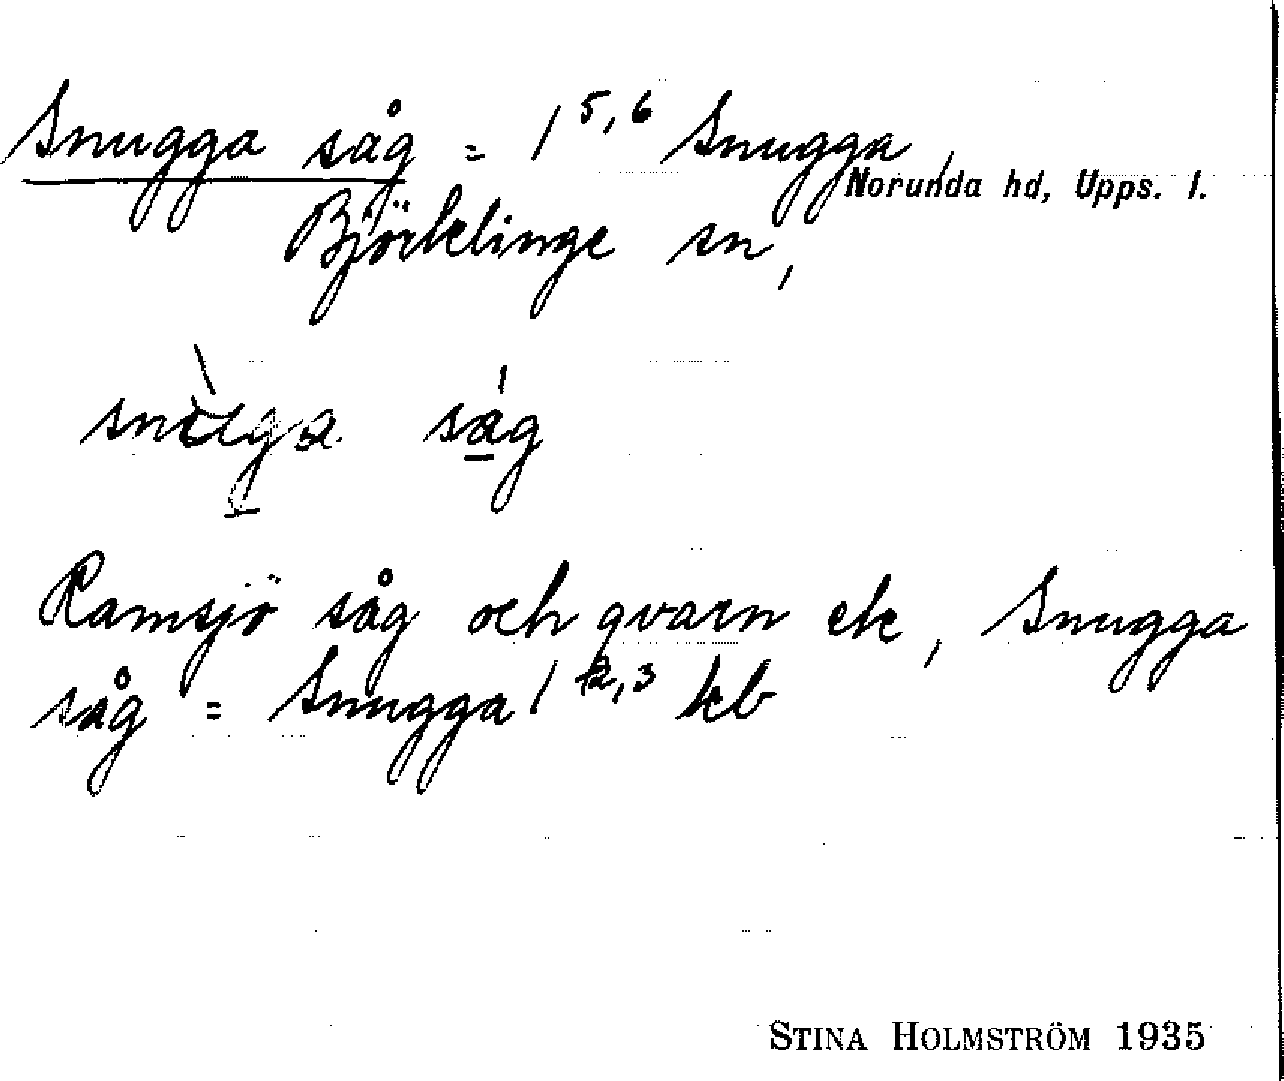 Snugga såg = 1 5,6 Snugga,
Norunda hd, Upps. l.
Björklinge sn,
snùga ság
Ramsjö såg och qvarn ek, Snugga
såg = Snugga 1 2,3 kb
STINA HOLMSTRÖM 1935